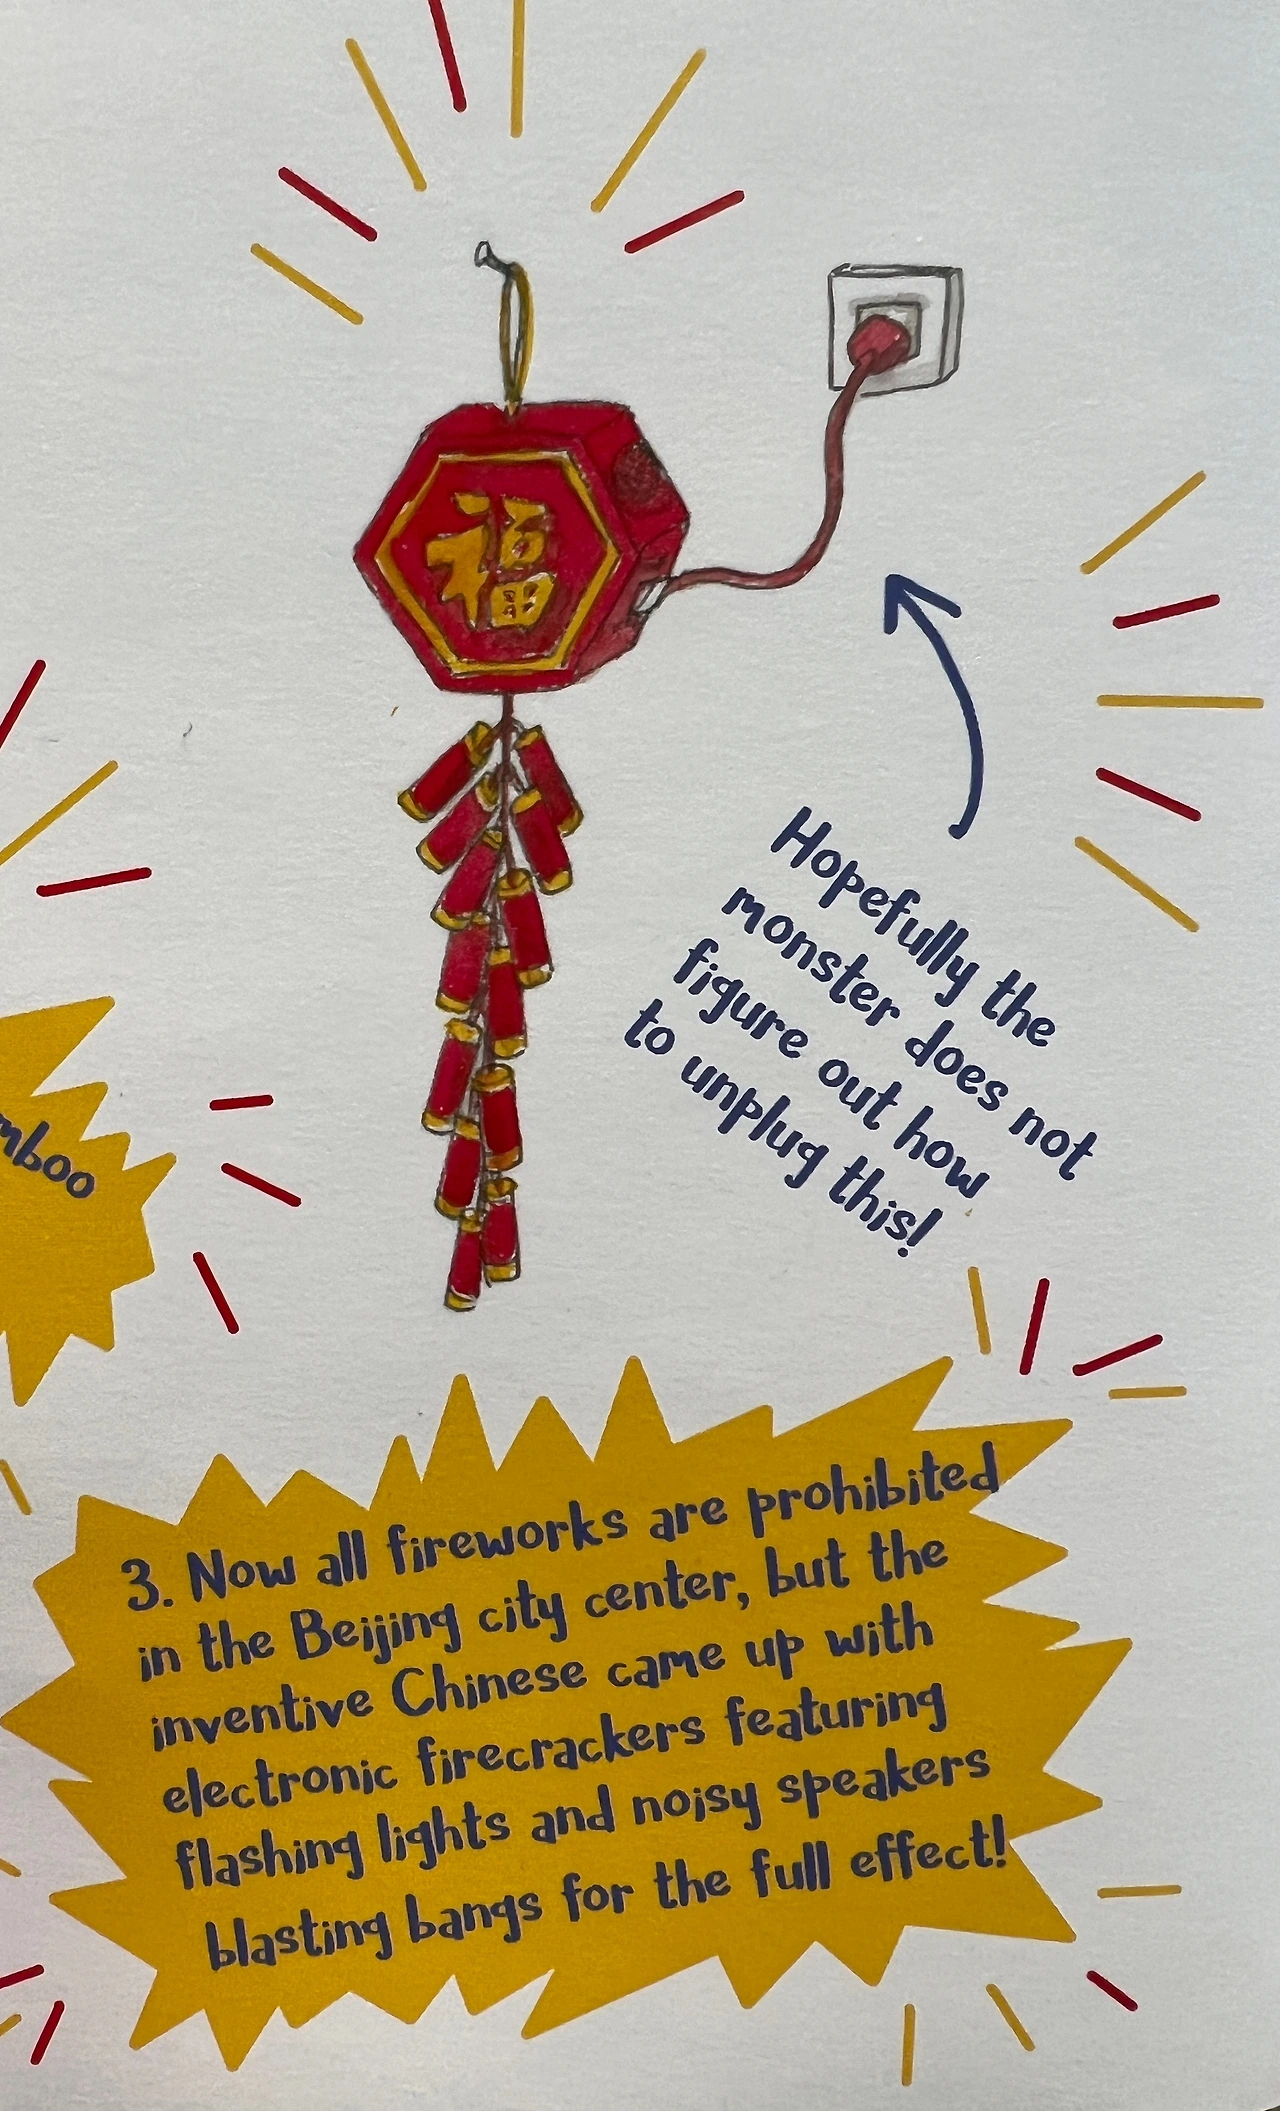 福
Hopefully the
monster does not
figure out how
to unplug this!
3. Now all fireworks are prohibited
in the Beijing city center, but the
inventive Chinese came up with
electronic firecrackers featuring
flashing lights and noisy speakers
blasting bangs for the full effect!